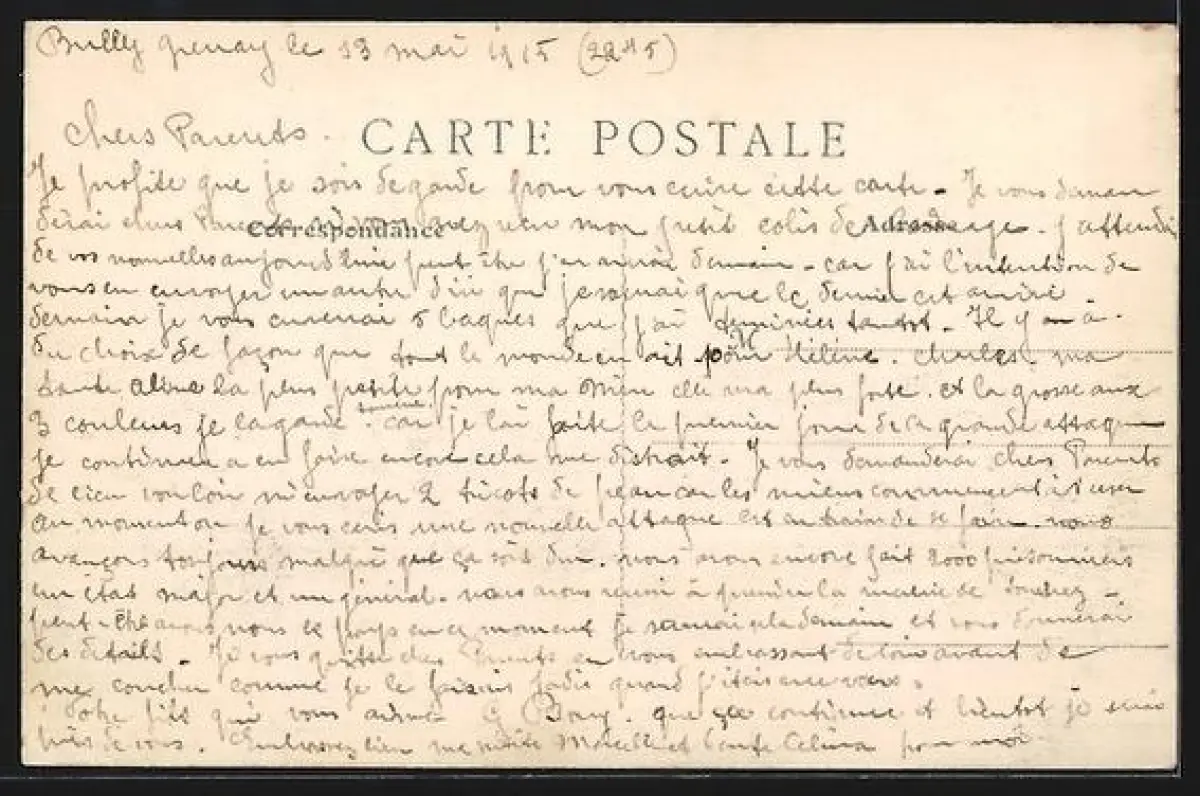 Bully grenay le 13 mai 1915 (22H5)
Chers Parents.
CARTE POSTALE
Je profite que je sois de garde pour vous ecrire cette carte. Je vous deman
derai chers si vous avez reçu mon petit colis de J'attendai
Correspondance
Adresse
de vos nouvelles aujourd'hui peut être j'en aurai demain. car j'ai l'intention de
vous en envoyer un autre d'ici que je saurai que le dernier est arrivé.
demain je vous enverrai 5 bagues que j'ai terminées tantot. Il y en a
du choix de façon que tout le monde en ait pour Hélène. Charles. ma
tante Aline la plus petite pour ma Mère elle va plus forte. et la grosse aux
3 couleurs je la garde. car je l'ai faite le premier jour de la grande attaque
je continue a en faire encore cela me distrait. Je vous demanderai chers Parents
de bien vouloir m'envoyer 2 tricots de peau car les miens commencent à s'user
au moment ou je vous ecris une nouvelle attaque est en train de se faire. nous
avançons toujours malgré que ça soit dur. nous avons encore fait 2000 prisonniers
un état major et un général. nous avons réussi à prendre la mairie de Souchez.
peut-être avons nous le pays en ce moment je saurai cela demain et vous donnerai
des details. Je vous quitte chers Parents en vous embrassant de loin avant de
me coucher comme je le faisais jadis quand j'étais avec vous.
Votre fils qui vous aime G que ça continue et bientot je serai
près de vous. Embrassez bien ma petite Marcelle et Celina pour moi